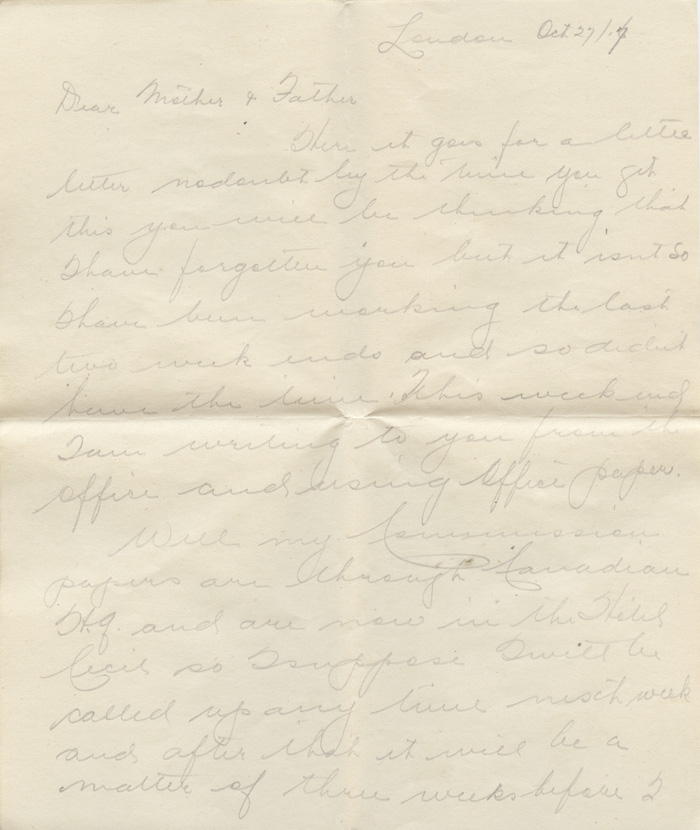 London Oct 27/17
Dear Mother & Father
Here it goes for a little
letter nodoubt by the time you get
this you will be thinking that
I have forgotten you but it isnt so
I have been working the last
two week ends and so didn't
have the time. This week end
I am writing to you from the
office and using Office paper.
Well my Commission
papers are through Canadian
H.Q. and are now in the Hotel
Cecil so I suppose I will be
called up any time next week
and after that it will be a
matter of three weeks before I